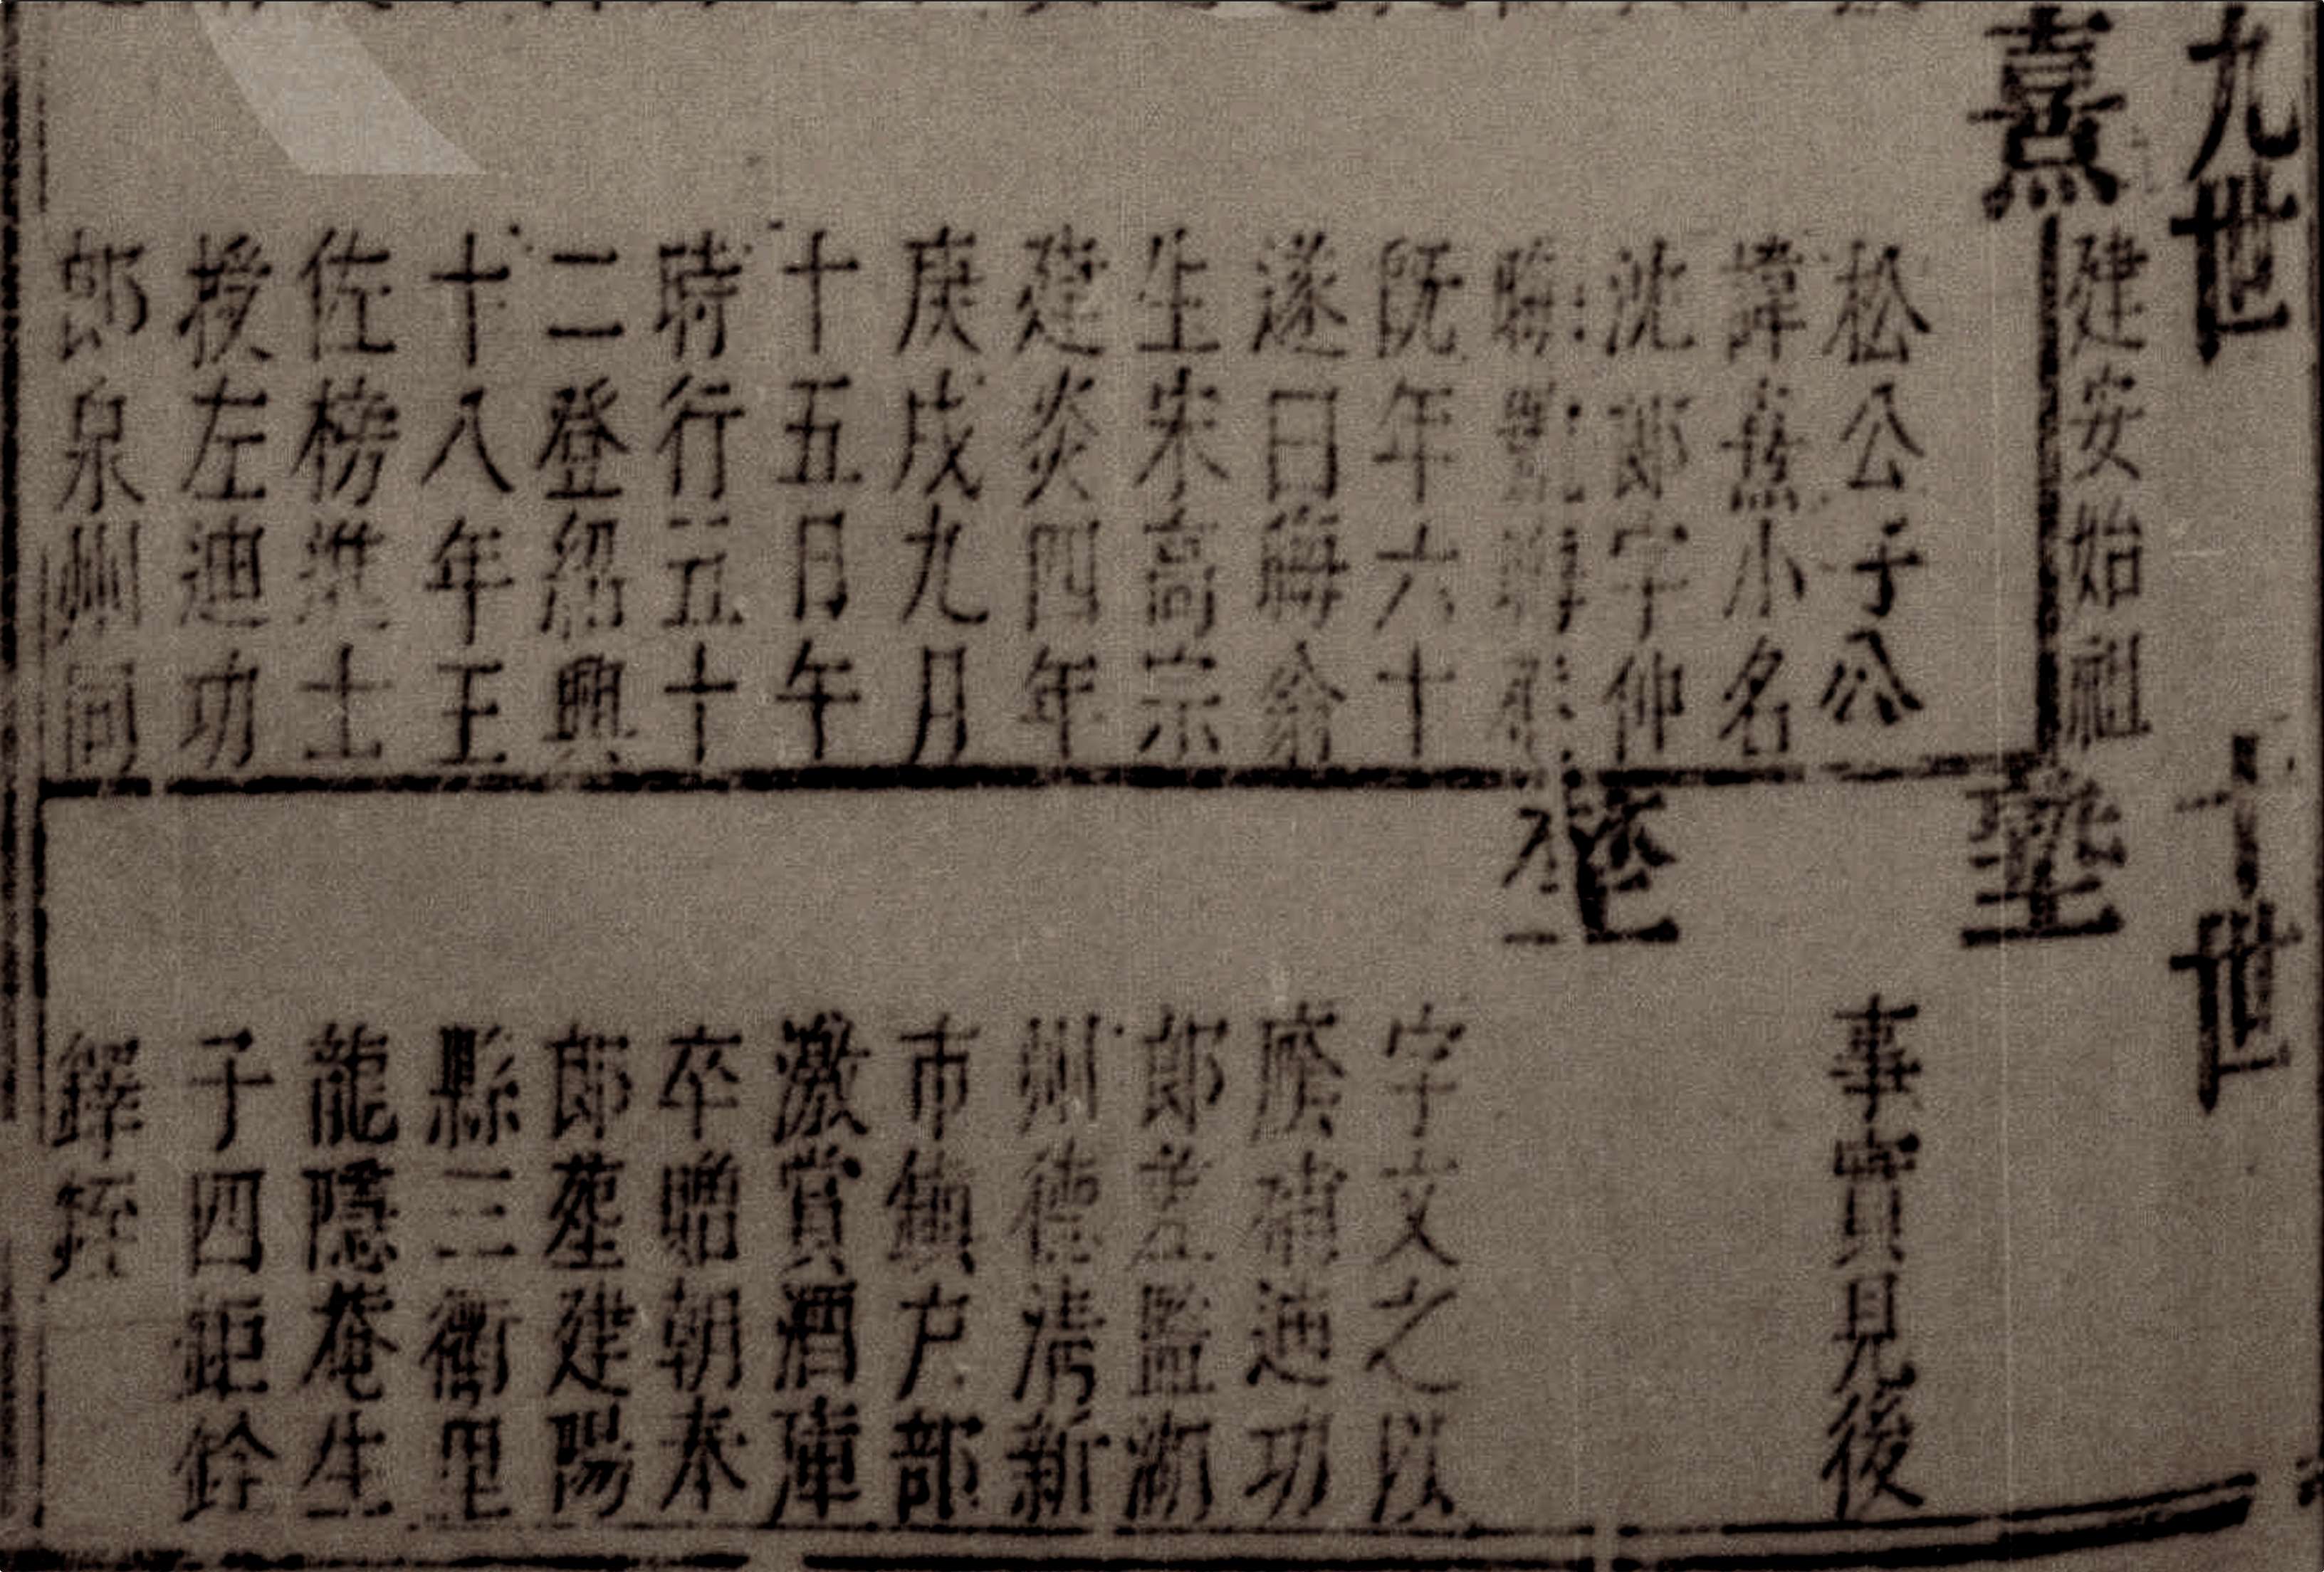 九世
熹
建安始祖
松公子公
諱熹小名
沈郎字仲
晦
既年六十
遂曰晦翁
生宋高宗
建炎四年
庚戌九月
十五日午
時行五十
二登紹興
十八年王
佐榜進士
授左迪功
郎泉州同
十世
塾
事實見後
埜
字文之以
廕補迪功
郎差監湖
州德清新
市鎮户部
激賞酒庫
卒贈朝奉
郎葬建陽
縣三衢里
龍隱菴生
子四鉅銓
鐸銍